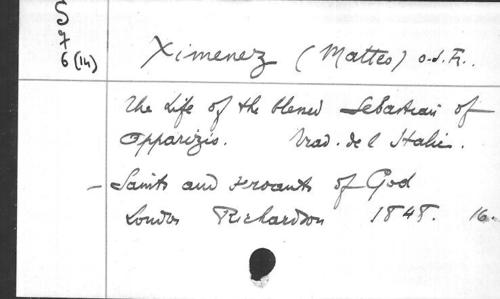 S
7
6 (14)
Ximenez (Matteo) o.d.F..
The Life of the blessed Sebastian of
Apparizio. Trad. de l'Italie.
- Saints and servants of God
London Richardson 1848. 16.